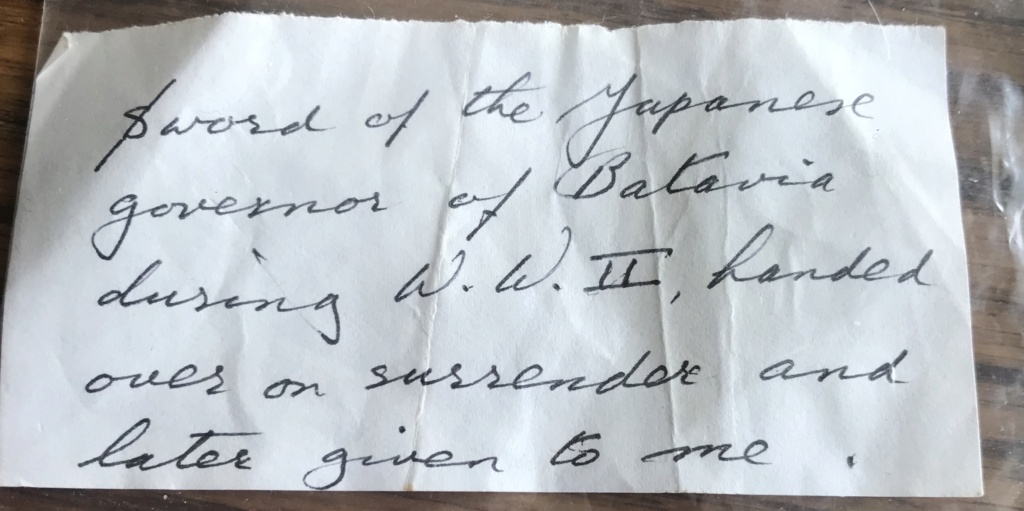 Sword of the Japanese
governor of Batavia
during W. W. II, handed
over on surrender and
later given to me .